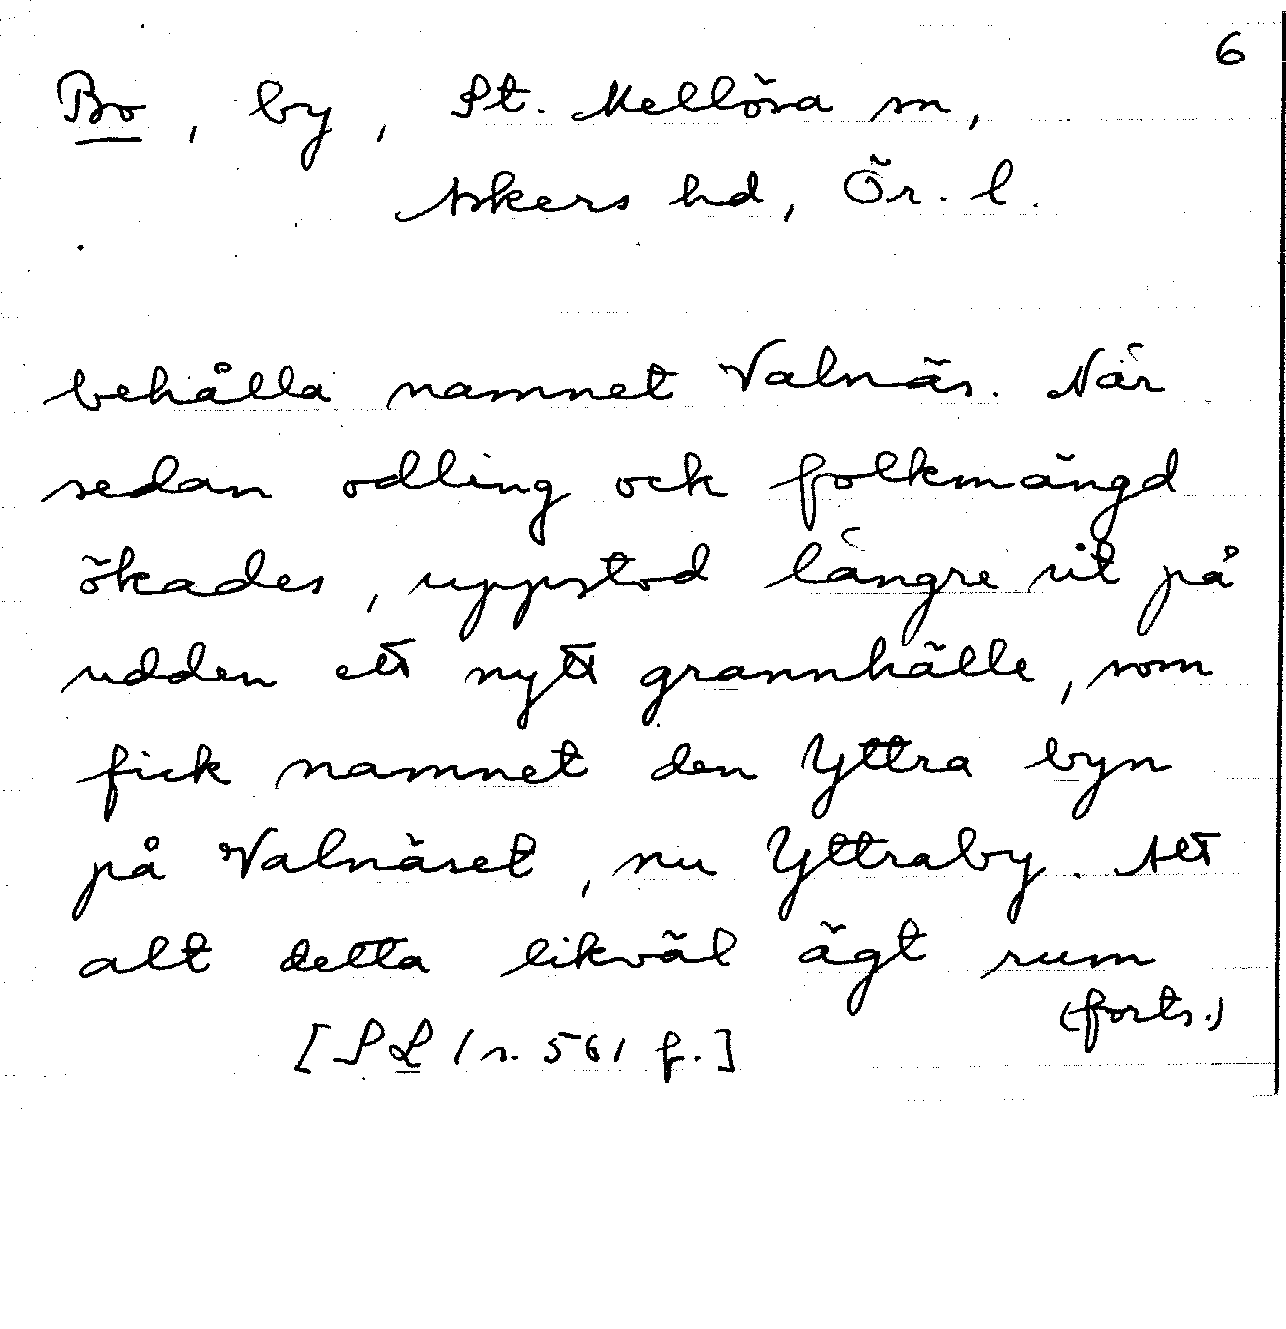 6
Bo, by, St. Mellösa sn,
Askers hd, Ör. l.
behålla namnet Valnäs. När
sedan odling och folkmängd
ökades, uppstod längre ut på
udden ett nytt grannhälle, som
fick namnet den Yttra byn
på Valnäset, nu Yttraby. Att
allt detta likväl ägt rum
(forts.)
[SL 1 s. 561 f.]